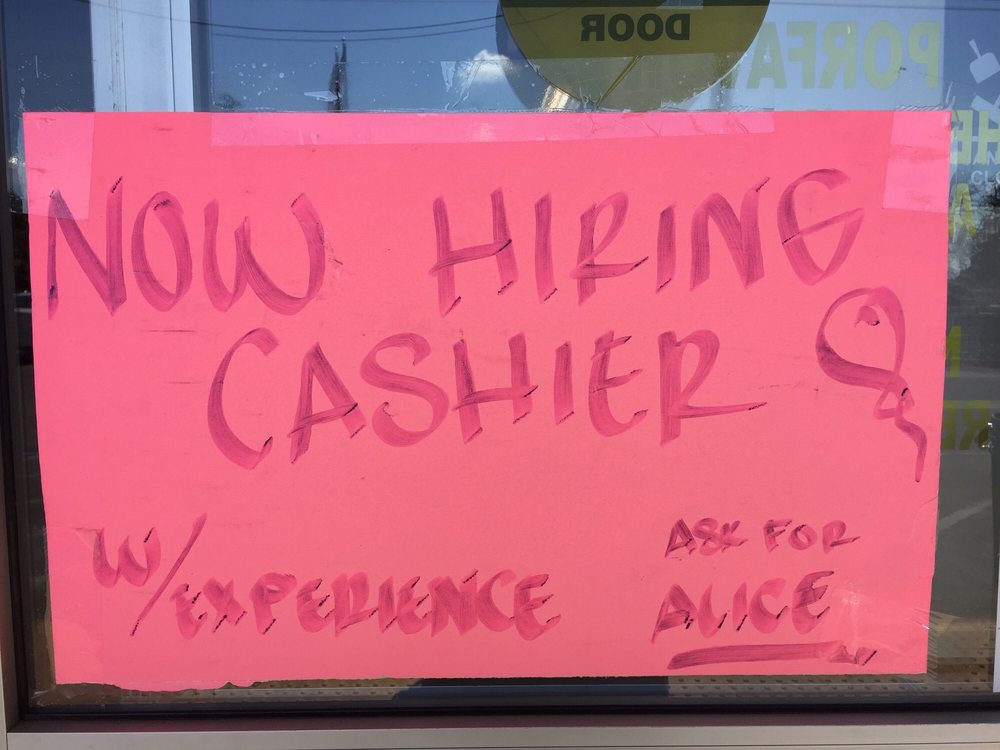 DOOR
PORFA
NOW HIRING
CASHIER
W/EXPERIENCE
ASK FOR
ALICE